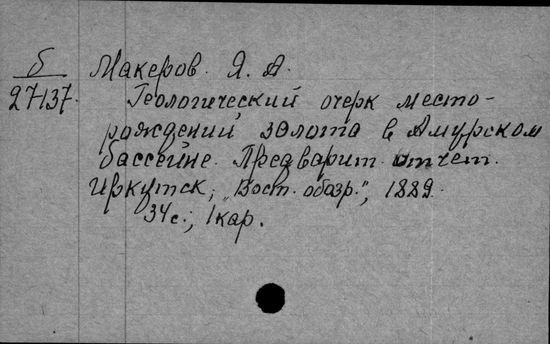 б Макеров. Я. А.
27137. Геологический очерк место-
рождений золота в Амурском
бассейне. Предварит. отчет.
Иркутск, "Вост. обозр.", 1889.
34с.; 1кар.